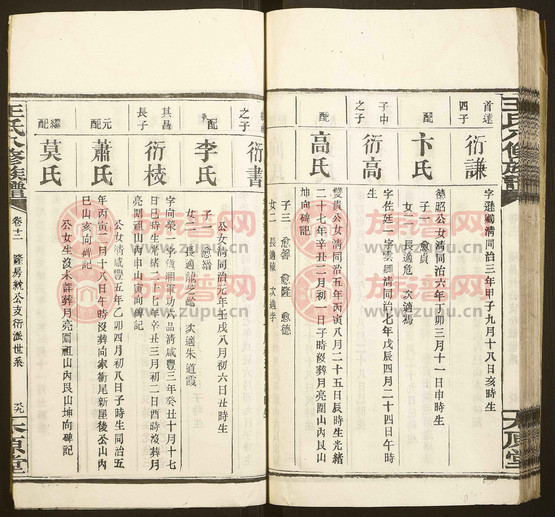 王氏八修族譜
太原堂
首達
四子
衍謙
字遜卿清同治三年甲子九月十八日亥時生
配
卞氏
德昭公女清同治六年丁卯三月十一日申時生
子一 愈貞
女二 長適危 次適馮
子中
次子
衍高
字佐廷一字雲衢清同治七年戊辰四月二十四日午時
生
配
高氏
雙貴公女清同治五年丙寅八月二十五日辰時生光緒
二十七年辛丑二月初一日子時沒葬月亮圍山內艮山
坤向碑記
子三 愈馨 愈隆 愈德
女二 長適陳 次適李
之子
衍書
配
李氏
公女清同治元年壬戌八月初六日丑時生
子一 愈增
女二 長適龍芝齡 次適朱道霞
其昌
長子
衍枝
字向榮一字儀明軍功六品清咸豐三年癸丑十月十七
日巳時生光緒二十七年辛丑三月初二日酉時沒葬月
亮圍祖山內申山寅向碑記
元配
蕭氏
公女清咸豐五年乙卯四月初八日子時生同治五
年丙寅二月十八日午時沒葬向家衝尾新屋後公山內
巳山亥向碑記
繼配
莫氏
公女生沒未詳葬月亮圍祖山內艮山坤向碑記
王氏八修族譜
卷十二
隆房統公支衍派世系
太原堂
族譜網
www.zupu.cn